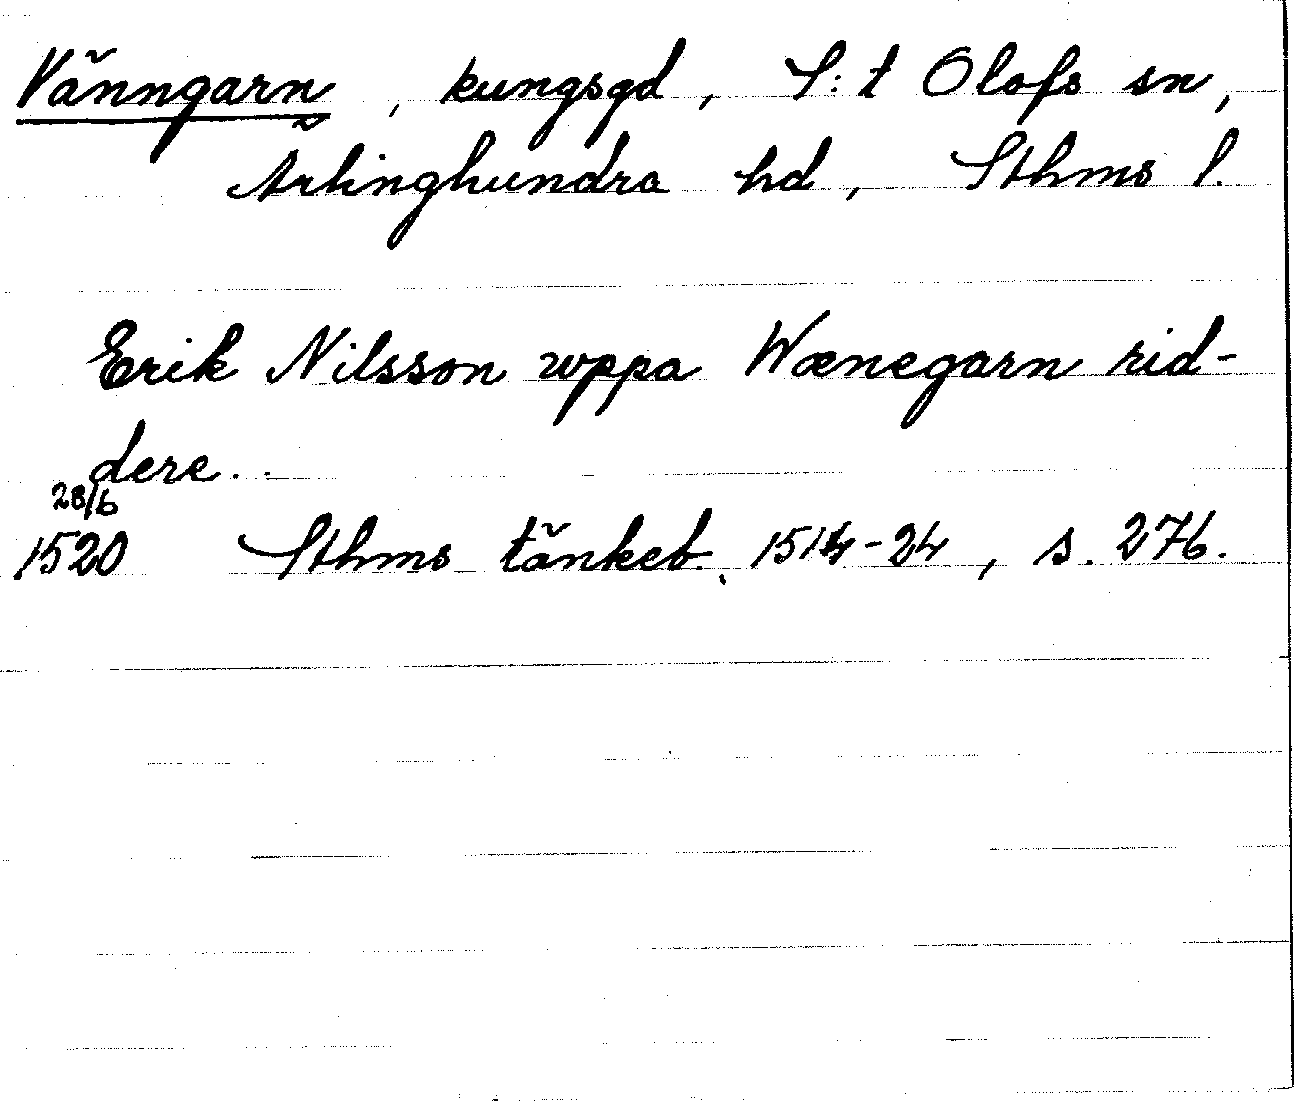 Vänngarn, kungsgd, S:t Olofs sn,
Ärlinghundra hd, Sthms l.
Erik Nilsson uppa Wænegarn rid-
dere..
28/6
1520 Sthms tänkeb. 1514-24, s. 276.